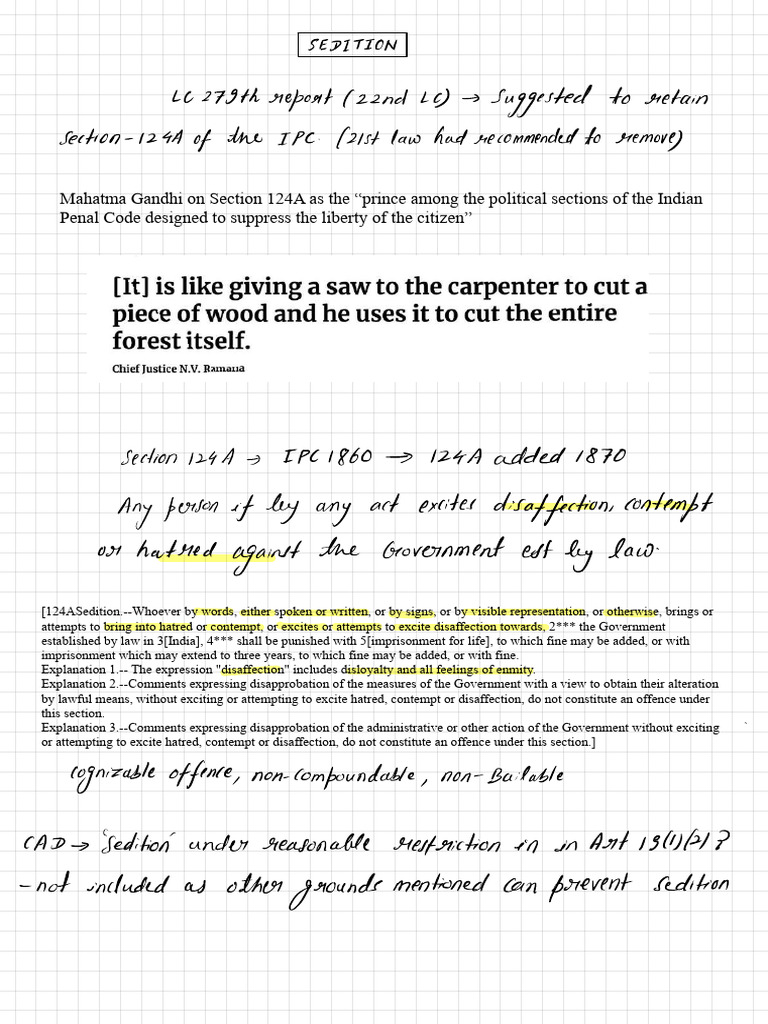 SEDITION
LC 279th report (22nd LC) → Suggested to retain
Section-124A of the IPC. (21st law had recommended to remove)
Mahatma Gandhi on Section 124A as the “prince among the political sections of the Indian
Penal Code designed to suppress the liberty of the citizen”
[It] is like giving a saw to the carpenter to cut a
piece of wood and he uses it to cut the entire
forest itself.
Chief Justice N.V. Ramana
Section 124A → IPC 1860 → 124A added 1870
Any person if by any act excites disaffection, contempt
or hatred against the Government est by law.
[124ASedition.--Whoever by words, either spoken or written, or by signs, or by visible representation, or otherwise, brings or
attempts to bring into hatred or contempt, or excites or attempts to excite disaffection towards, 2*** the Government
established by law in 3[India], 4*** shall be punished with 5[imprisonment for life], to which fine may be added, or with
imprisonment which may extend to three years, to which fine may be added, or with fine.
Explanation 1.-- The expression "disaffection" includes disloyalty and all feelings of enmity.
Explanation 2.--Comments expressing disapprobation of the measures of the Government with a view to obtain their alteration
by lawful means, without exciting or attempting to excite hatred, contempt or disaffection, do not constitute an offence under
this section.
Explanation 3.--Comments expressing disapprobation of the administrative or other action of the Government without exciting
or attempting to excite hatred, contempt or disaffection, do not constitute an offence under this section.]
cognizable offence, non-compoundable, non-Bailable
CAD → 'Sedition' under reasonable restriction in in Art 19(1)(2)?
- not included as other grounds mentioned can prevent sedition